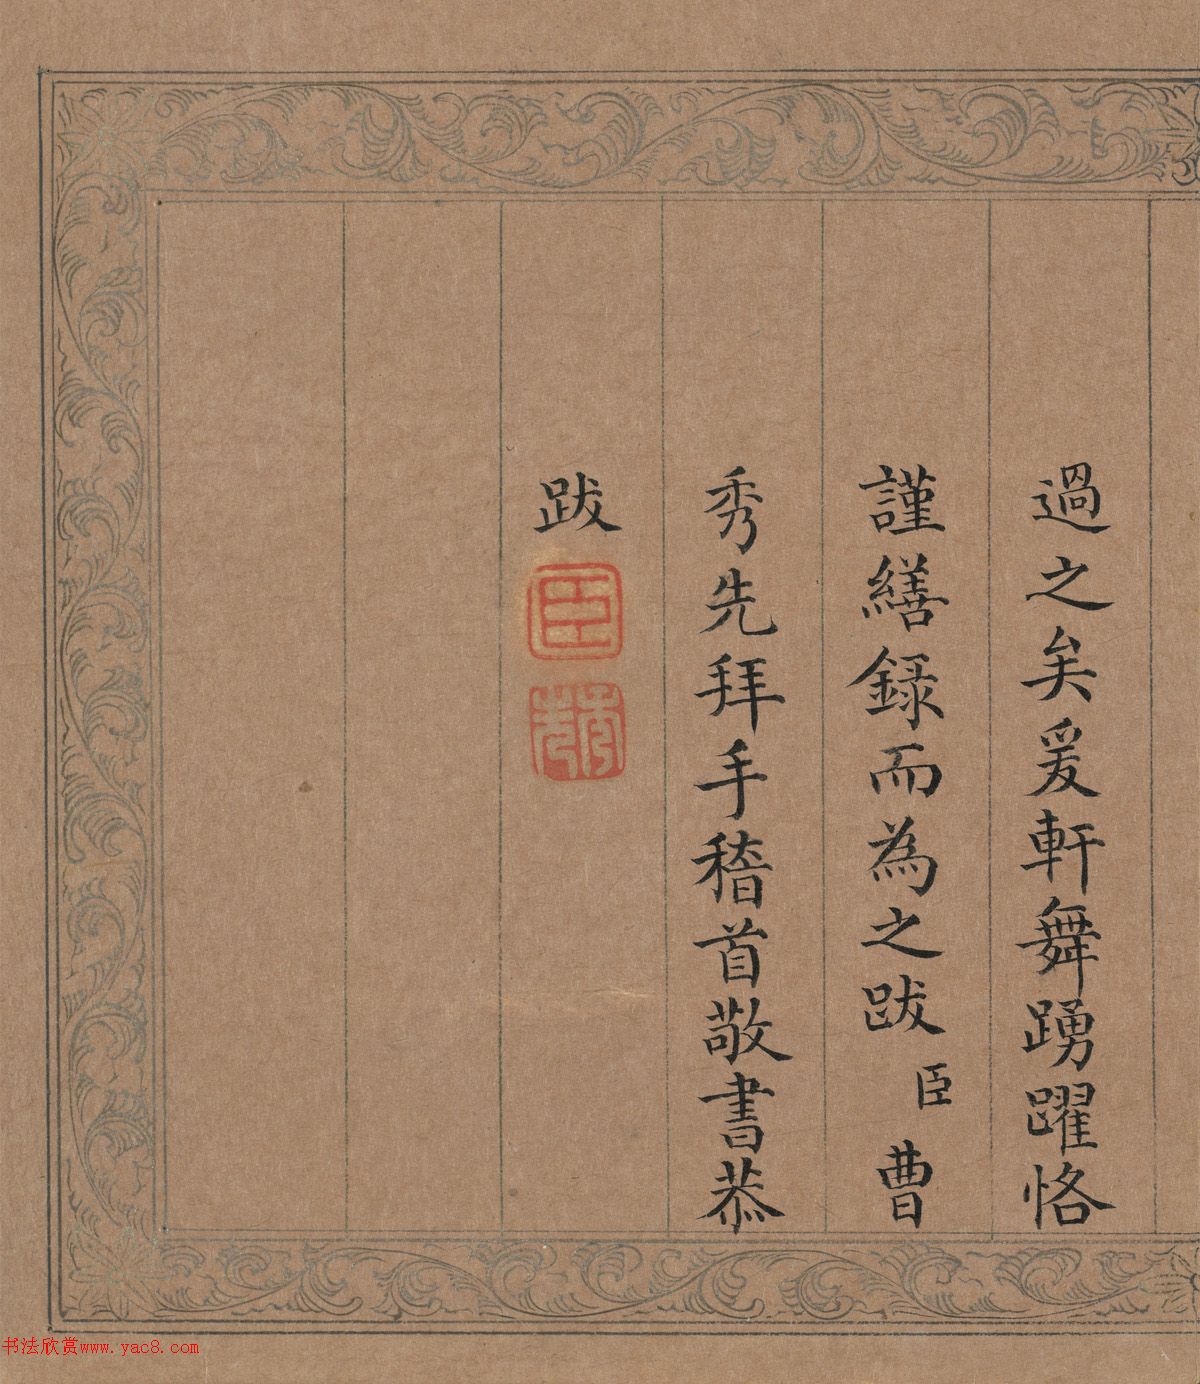 過之矣爰軒舞踴躍恪
謹繕録而為之跋臣曹
秀先拜手稽首敬書恭
跋
臣
秀先
书法欣赏www.yac8.com